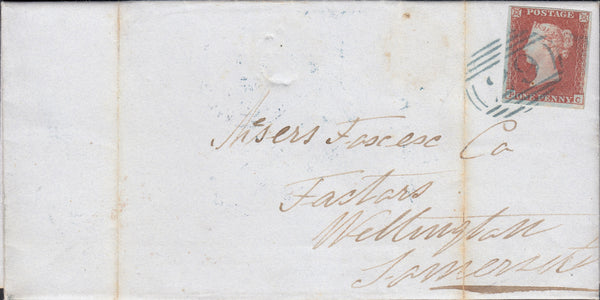 POSTAGE
ONE PENNY
Messers Foxes & Co
Factors
Wellington
Somerset